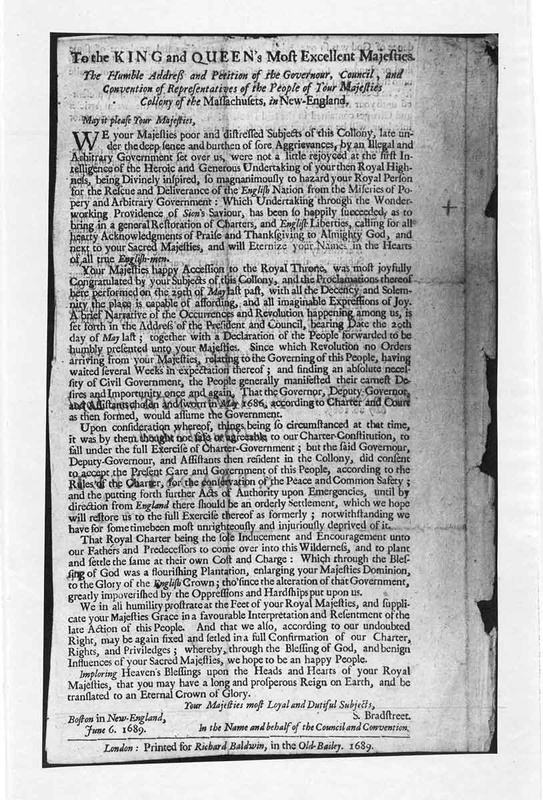 To the KING and QUEEN's Most Excellent Majesties.
The Humble Address and Petition of the Governour, Council, and
Convention of Representatives of the People of Your Majesties
Collony of the Massachusets, in New-England,
May it please Your Majesties,
WE your Majesties poor and distressed Subjects of this Colony, late un-
der the deep sence and burthen of sore Aggrievances, by an Illegal and
Arbitrary Government set over us, were not a little rejoyced at the first In-
telligence of the Heroic and Generous Undertaking of your then Royal High-
ness, being Divinely inspired, so magnanimously to hazard your Royal Person
for the Rescue and Deliverance of the English Nation from the Miseries of Po-
pery and Arbitrary Government: Which Undertaking through the Wonder-
working Providence of Sion's Saviour, has been so happily succeeded, as to
bring in a general Restoration of Charters, and English Liberties, calling for all
hearty Acknowledgments of Praise and Thanksgiving to Almighty God, and
next to your Sacred Majesties, and will Eternize your Names in the Hearts
of all true English-men.
Your Majesties happy Accession to the Royal Throne, was most joyfully
Congratulated by your Subjects of this Collony, and the Proclamations thereof
here performed on the 29th of May last past, with all the Decency and Solem-
nity the place is capable of affording, and all imaginable Expressions of Joy.
A brief Narrative of the Occurrences and Revolution happening among us, is
set forth in the Address of the President and Council, bearing Date the 20th
day of May last; together with a Declaration of the People forwarded to be
humbly presented unto your Majesties. Since which Revolution no Orders
arriving from your Majesties, relating to the Governing of this People, having
waited several Weeks in expectation thereof; and finding an absolute neces-
sity of Civil Government, the People generally manifested their earnest De-
sires and Importunity once and again, That the Governor, Deputy-Governor,
and Assistants chosen and sworn in May 1686, according to Charter and Court
as then formed, would assume the Government.
Upon consideration whereof, things being so circumstanced at that time,
it was by them thought not safe or agreeable to our Charter-Constitution, to
fall under the full Exercise of Charter-Government; but the said Governour,
Deputy-Governour, and Assistants then resident in the Colony, did consent
to accept the Present Care and Government of this People, according to the
Rules of the Charter, for the conservation of the Peace and Common Safety;
and the putting forth further Acts of Authority upon Emergencies, until by
direction from England there should be an orderly Settlement, which we hope
will restore us to the full Exercise thereof as formerly; notwithstanding we
have for some timebeen most unrighteously and injuriously deprived of it.
That Royal Charter being the sole Inducement and Encouragement unto
our Fathers and Predecessors to come over into this Wilderness, and to plant
and settle the same at their own Cost and Charge: Which through the Bles-
sing of God was a flourishing Plantation, enlarging your Majesties Dominion,
to the Glory of the English Crown; tho' since the alteration of that Government,
greatly impoverished by the Oppressions and Hardships put upon us.
We in all humility prostrate at the Feet of your Royal Majesties, and suppli-
cate your Majesties Grace in a favourable Interpretation and Resentment of the
late Action of this People. And that we also, according to our undoubted
Right, may be again fixed and setled in a full Confirmation of our Charter,
Rights, and Priviledges; whereby, through the Blessing of God, and benign
Influences of your Sacred Majesties, we hope to be an happy People.
Imploring Heaven's Blessings upon the Heads and Hearts of your Royal
Majesties, that you may have a long and prosperous Reign on Earth, and be
translated to an Eternal Crown of Glory.
Your Majesties most Loyal and Dutiful Subjects,
Boston in New-England, S. Bradstreet.
June 6. 1689. In the Name and behalf of the Council and Convention.
London: Printed for Richard Baldwin, in the Old-Bailey. 1689.